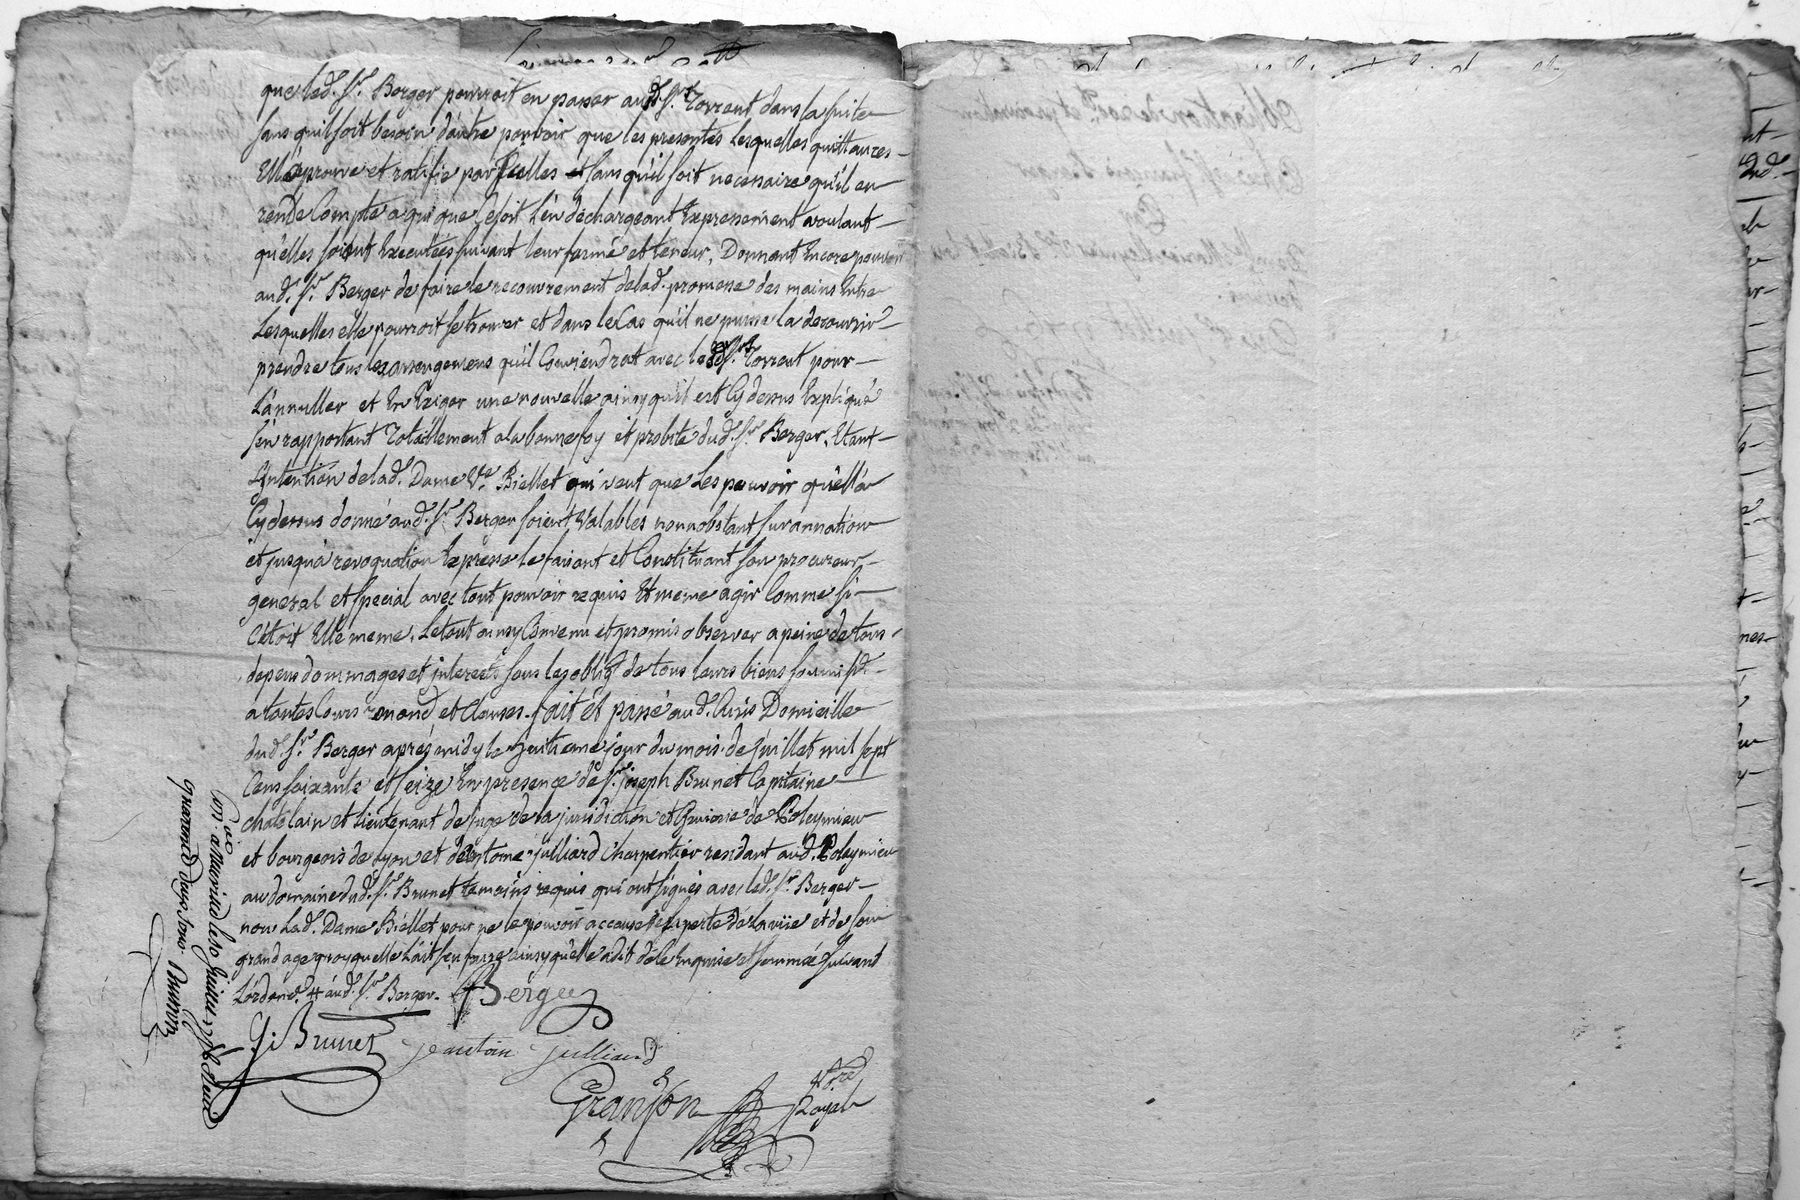 que led. Sr. Berger pourroit en passer aud. Sr. Torrent dans la suite
sans quil soit besoin d'autre pouvoir que les presentes lesquelles quittances
Elle aprouve et ratifie par Icelles et sans qu'il soit necessaire qu'il en
rende Compte a qui que Cesoit l'en dechargeant Expressement voulant
qu'elles soient Executées suivant leur forme et teneur, Donnant Encore pouvoir
aud. Sr. Berger de faire le recouvrement delad. promesse des mains Entre
Lesquelles elle pourroit se trouver et dans le Cas qu'il ne puisse la decouvrir
prendre tous les arrengemens qu'il Conviendrat avec led. Sr. Torrent pour
L'annuller et En Exiger une nouvelle ainsy qu'il est Cydessus Expliqué
s'en rapportant Totallement a la bonne foy et probité dud. Sr. Berger, Etant
L'Intention delad. Dame Ve. Biellet qui veut que Les pouvoir qu'ell'a
Cydessus donné aud. Sr. Berger soient Valables nonnobstant surannation
et jusqu'a revoquation Expresse le faisant et Constituant son procureur
general et special avec tout pouvoir requis Et meme agir Comme si
C'étoit Elle meme. Le tout ainsy Convenu et promis observer a peine de tous
depens dommages et interets sous les oblig. de tous leurs biens
a toutes Cours renond. et Clauses. fait et passé aud. Curis Domicille
dud. Sr. Berger aprés midy le huitieme jour du mois de juillet mil sept
Cens soixante et seize En presence de Sr. joseph Brunet Capitaine
chatelain et lieutenant de juge de la jurisdiction de Poleymieu
et bourgeois de Lyon et d'antoine julliard Charpentier residant aud. Poleymieu
au domaine dud. Sr. Brunet temoins requis qui ont signés avec led. Sr. Berger
non Lad. Dame Biellet pour ne le pouvoir accause de la perte de la vüe et de son
grand age quoyquelle L'ait sçu faire ainsy qu'elle a dit de ce Enquise et sommée suivant
L'ordonce. # aud. Sr. Berger. Berger
Brunet jeantoin julliard
Granjon Nore. Royal
Con. a neuville le 20 juillet 1776 Reçu
quarante deux sous